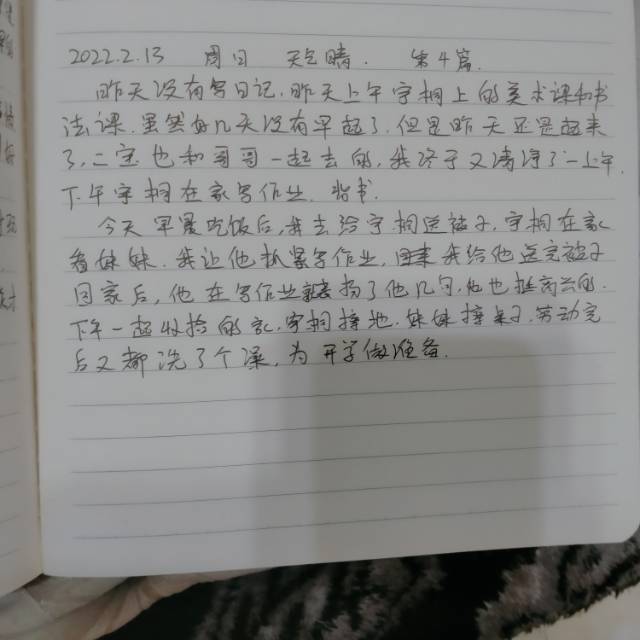 2022.2.13 周日 天气晴. 第4篇.
昨天没有写日记,昨天上午宇桐上的美术课和书
法课,虽然好几天没有早起了,但是昨天还是起来
了,二宝也和哥哥一起去的,我终于又清净了一上午,
下午宇桐在家写作业,背书.
今天早晨吃饭后,我去给宇桐送被子,宇桐在家
看妹妹,我让他抓紧写作业,我给他送完被子
回家后,他在写作业 扬了他几句,他也挺高兴的.
下午一起收拾的家,宇桐擦地,妹妹擦桌子,劳动完
后又都洗了个澡,为开学做准备.